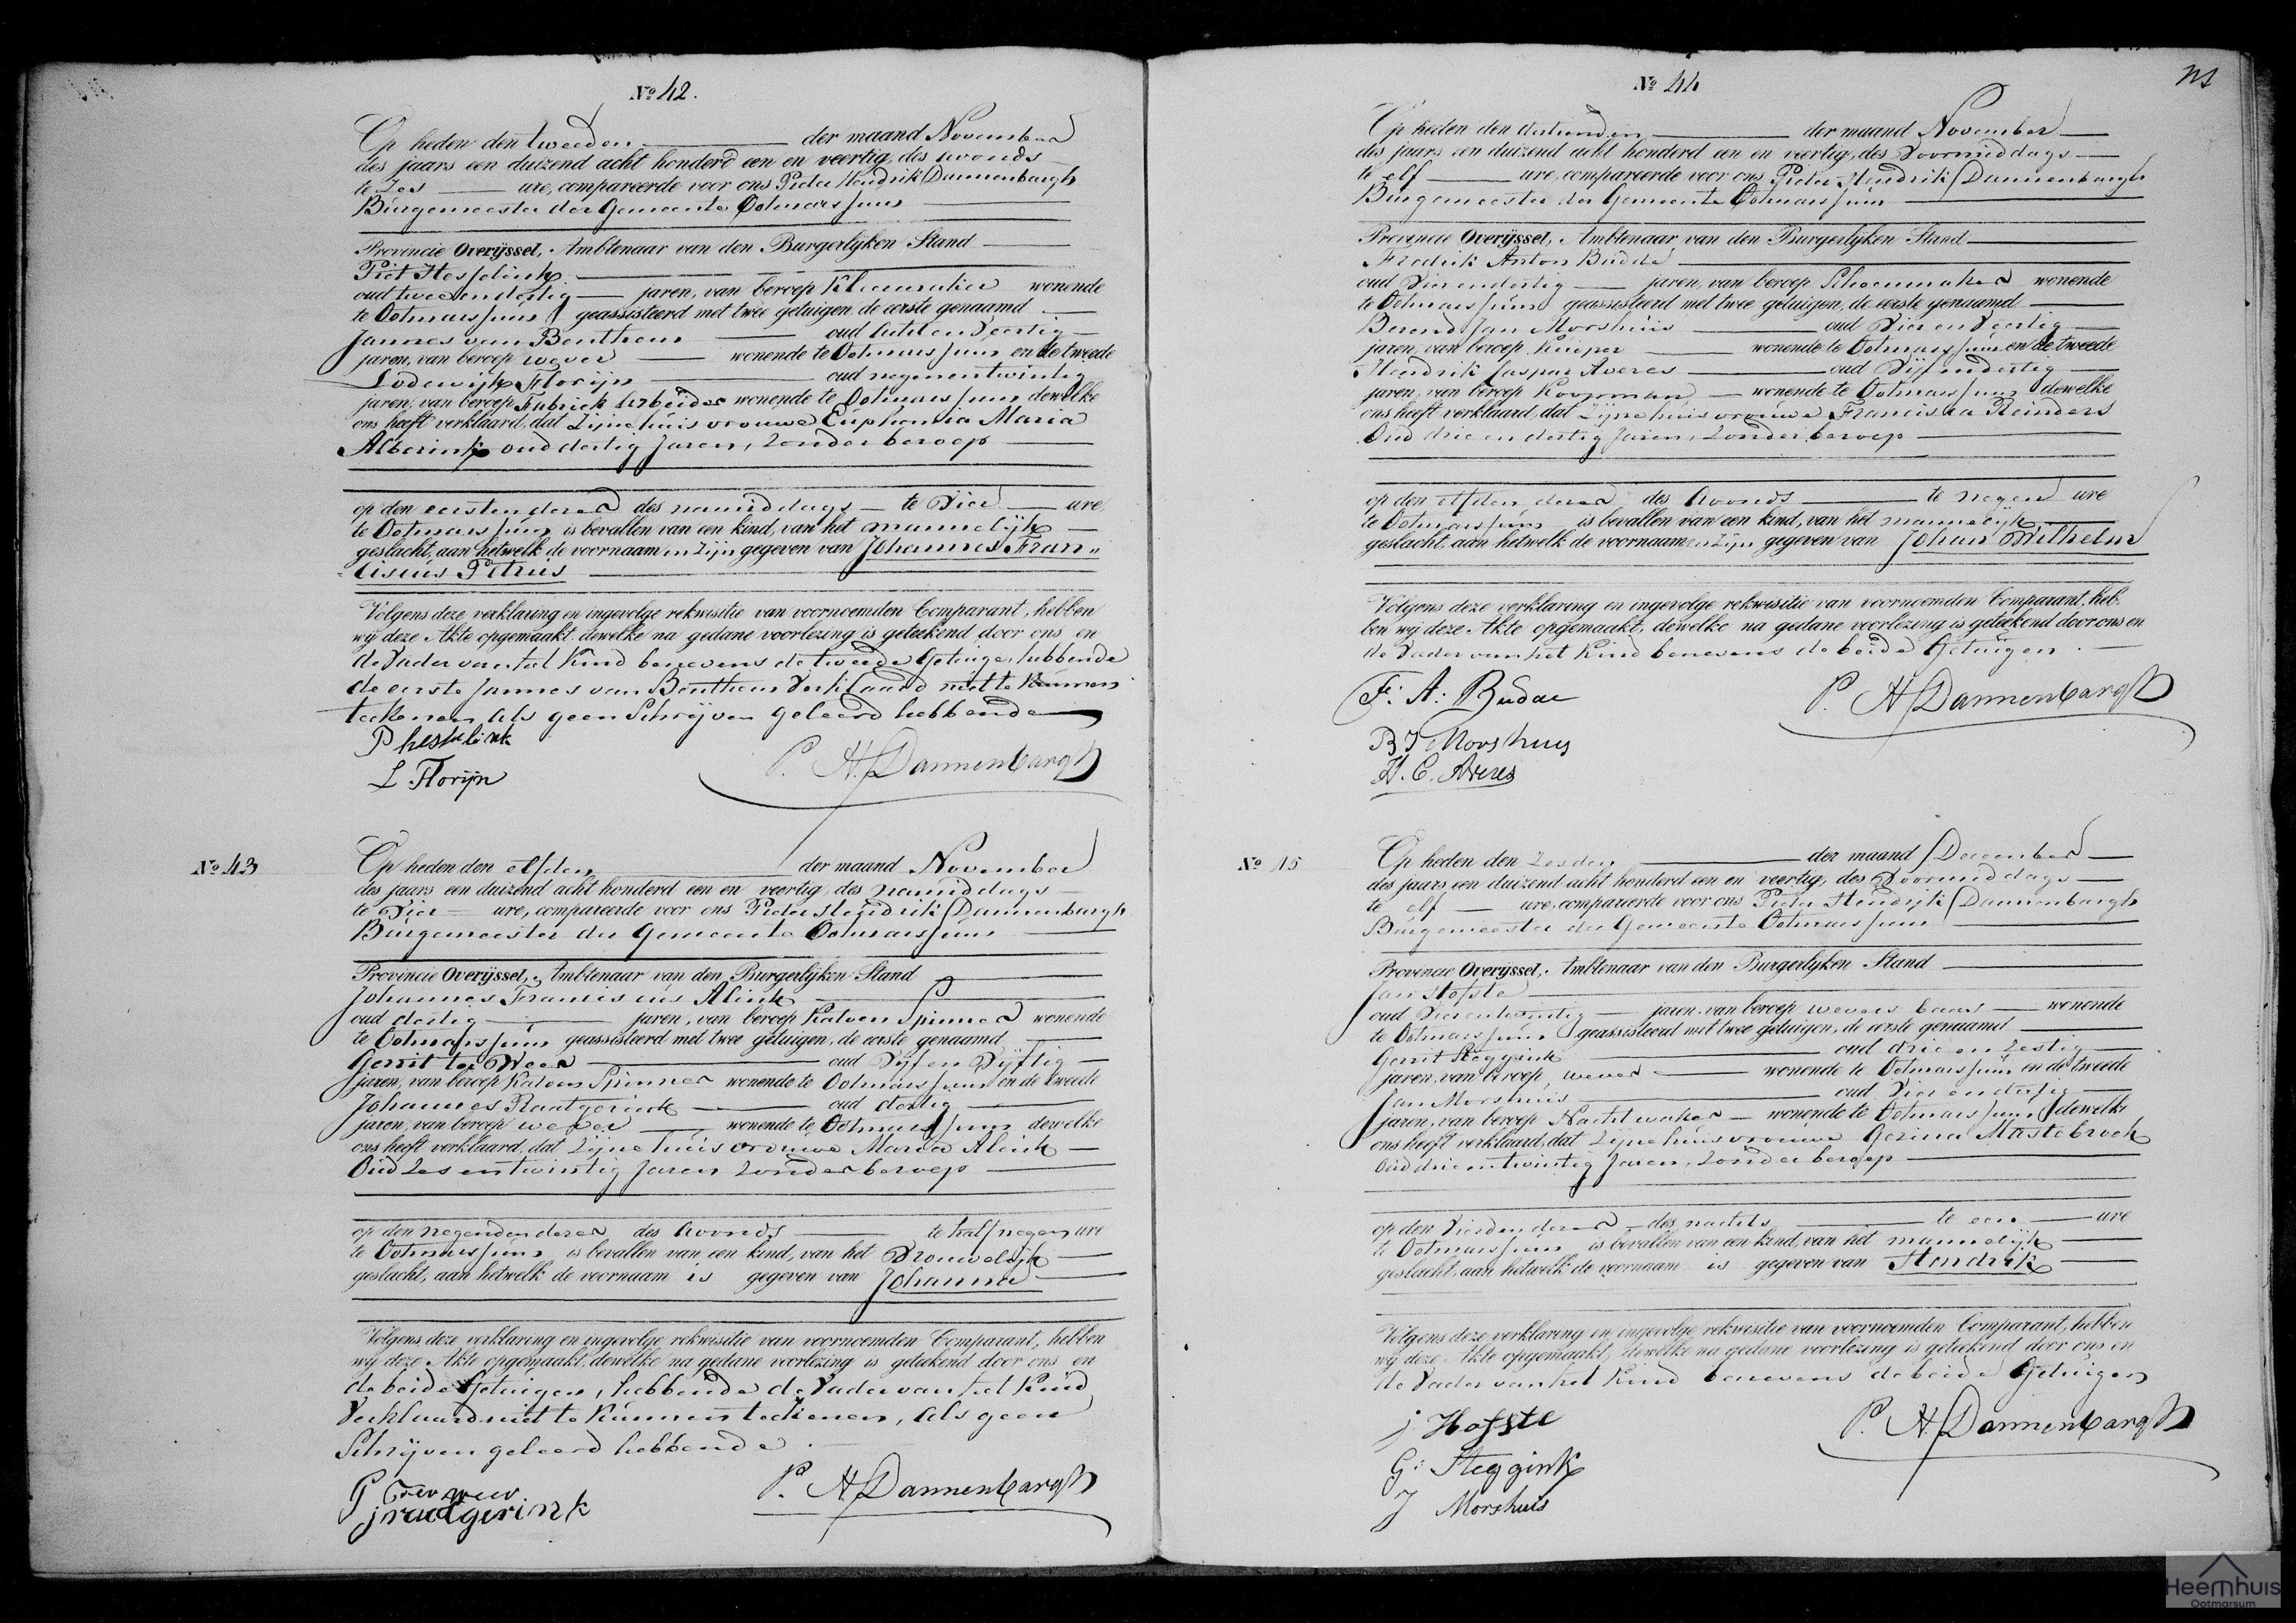 No 42.
Op heden den tweeden der maand November
des jaars een duizend acht honderd een en veertig, des avonds
te Zes ure, compareerde voor ons Pieter Hendrik Dannenbargh
Burgemeester der Gemeente Ootmarssum
Provincie Overijssel, Ambtenaar van den Burgerlijken Stand
Piet Hesselink
oud twee en dertig jaren, van beroep Kleermaker wonende
te Ootmarssum geassisteerd met twee getuigen, de eerste genaamd
Jannes van Benthem oud acht en Veertig
jaren, van beroep wever wonende te Ootmarssum en de tweede
Lodewijk Florijn oud negenentwintig
jaren, van beroep Fabriek Arbeider wonende te Ootmarssum dewelke
ons heeft verklaard, dat Zijne huisvrouwe Euphemia Maria
Alberink oud dertig Jaren, Zonder beroep
op den eersten dezer des namiddags te Vier ure
te Ootmarssum is bevallen van een kind, van het mannelijk
geslacht, aan hetwelk de voornaamen Zijn gegeven van Johannes Fran"
ciscus Petrus
Volgens deze verklaring en ingevolge rekwisitie van voornoemden Comparant, hebben
wij deze Akte opgemaakt, dewelke na gedane voorlezing is geteekend door ons en
de Vader van het Kind benevens de tweede Getuige, hebbende
de eerste Jannes van Benthem Verklaard niet te Kunnen
teekenen als geen Schrijven geleerd hebbende
P hesselink
L Florijn
P. H. Dannenbargh
No 43
Op heden den elfden der maand November
des jaars een duizend acht honderd een en veertig, des namiddags
te Vier ure, compareerde voor ons Pieter Hendrik Dannenbargh
Burgemeester der Gemeente Ootmarssum
Provincie Overijssel, Ambtenaar van den Burgerlijken Stand
Johannes Franciscus Alink
oud dertig jaren, van beroep Katoen Spinner wonende
te Ootmarssum geassisteerd met twee getuigen, de eerste genaamd
Gerrit ter Weer oud Vijf en Vijftig
jaren, van beroep Katoen Spinner wonende te Ootmarssum en de tweede
Johannes Raatgerink oud dertig
jaren, van beroep wever wonende te Ootmarssum dewelke
ons heeft verklaard, dat Zijne huisvrouwe Maria Alink
Oud Zes en twintig Jaren Zonder beroep
op den negenden dezer des Avonds te half negen ure
te Ootmarssum is bevallen van een kind, van het Vrouwelijk
geslacht, aan hetwelk de voornaam is gegeven van Johanna
Volgens deze verklaring en ingevolge rekwisitie van voornoemden Comparant, hebben
wij deze Akte opgemaakt, dewelke na gedane voorlezing is geteekend door ons en
de beide Getuigen, hebbende de Vader van het Kind
Verklaard niet te Kunnen teekenen, als geen
Schrijven geleerd hebbende
G Ter weer
J raatgerink
P. H. Dannenbargh
No 44
Op heden den dertienden der maand November
des jaars een duizend acht honderd een en veertig, des Voormiddags
te elf ure, compareerde voor ons Pieter Hendrik Dannenbargh
Burgemeester der Gemeente Ootmarssum
Provincie Overijssel, Ambtenaar van den Burgerlijken Stand
Fredrik Anton Budde
oud Vier en dertig jaren, van beroep Schoenmaker wonende
te Ootmarssum geassisteerd met twee getuigen, de eerste genaamd
Berend Jan Morshuis oud Vier en Veertig
jaren, van beroep Kuiper wonende te Ootmarssum en de tweede
Hendrik Caspar Averes oud Vijf en dertig
jaren, van beroep Koopman wonende te Ootmarssum dewelke
ons heeft verklaard, dat Zijne huisvrouwe Francisca Reinders
Oud drie en dertig Jaren, Zonder beroep
op den elfden dezer des Avonds te negen ure
te Ootmarssum is bevallen van een kind, van het mannelijk
geslacht, aan hetwelk de voornaamen Zijn gegeven van Johan Wilhelm
Volgens deze verklaring en ingevolge rekwisitie van voornoemden Comparant, heb-
ben wij deze Akte opgemaakt, dewelke na gedane voorlezing is geteekend door ons en
de Vader van het Kind benevens de beide Getuigen.
F: A: Budde
B J Morshuis
H. C. Averes
P. H. Dannenbargh
No 45
Op heden den Zesden der maand December
des jaars een duizend acht honderd een en veertig, des Voormiddags
te elf ure, compareerde voor ons Pieter Hendrik Dannenbargh
Burgemeester der Gemeente Ootmarssum
Provincie Overijssel, Ambtenaar van den Burgerlijken Stand
Jan Hofste
oud Vierentwintig jaren, van beroep wevers baas wonende
te Ootmarssum geassisteerd met twee getuigen, de eerste genaamd
Gerrit Steggink oud drie en Zestig
jaren, van beroep wever wonende te Ootmarssum en de tweede
Jan Morshuis oud Vier en dertig
jaren, van beroep Nachtwaker wonende te Ootmarssum dewelke
ons heeft verklaard, dat Zijne huisvrouwe Gezina Mastebroek
Oud drie en twintig Jaren, Zonder beroep
op den Vierden dezer des nachts te een ure
te Ootmarssum is bevallen van een kind, van het mannelijk
geslacht, aan hetwelk de voornaam is gegeven van Hendrik
Volgens deze verklaring en ingevolge rekwisitie van voornoemden Comparant, hebben
wij deze Akte opgemaakt, dewelke na gedane voorlezing is geteekend door ons en
de Vader van het Kind benevens de beide Getuigen
j Hofste
G: Steggink
J Morshuis
P. H. Dannenbargh
Heemhuis
Ootmarsum